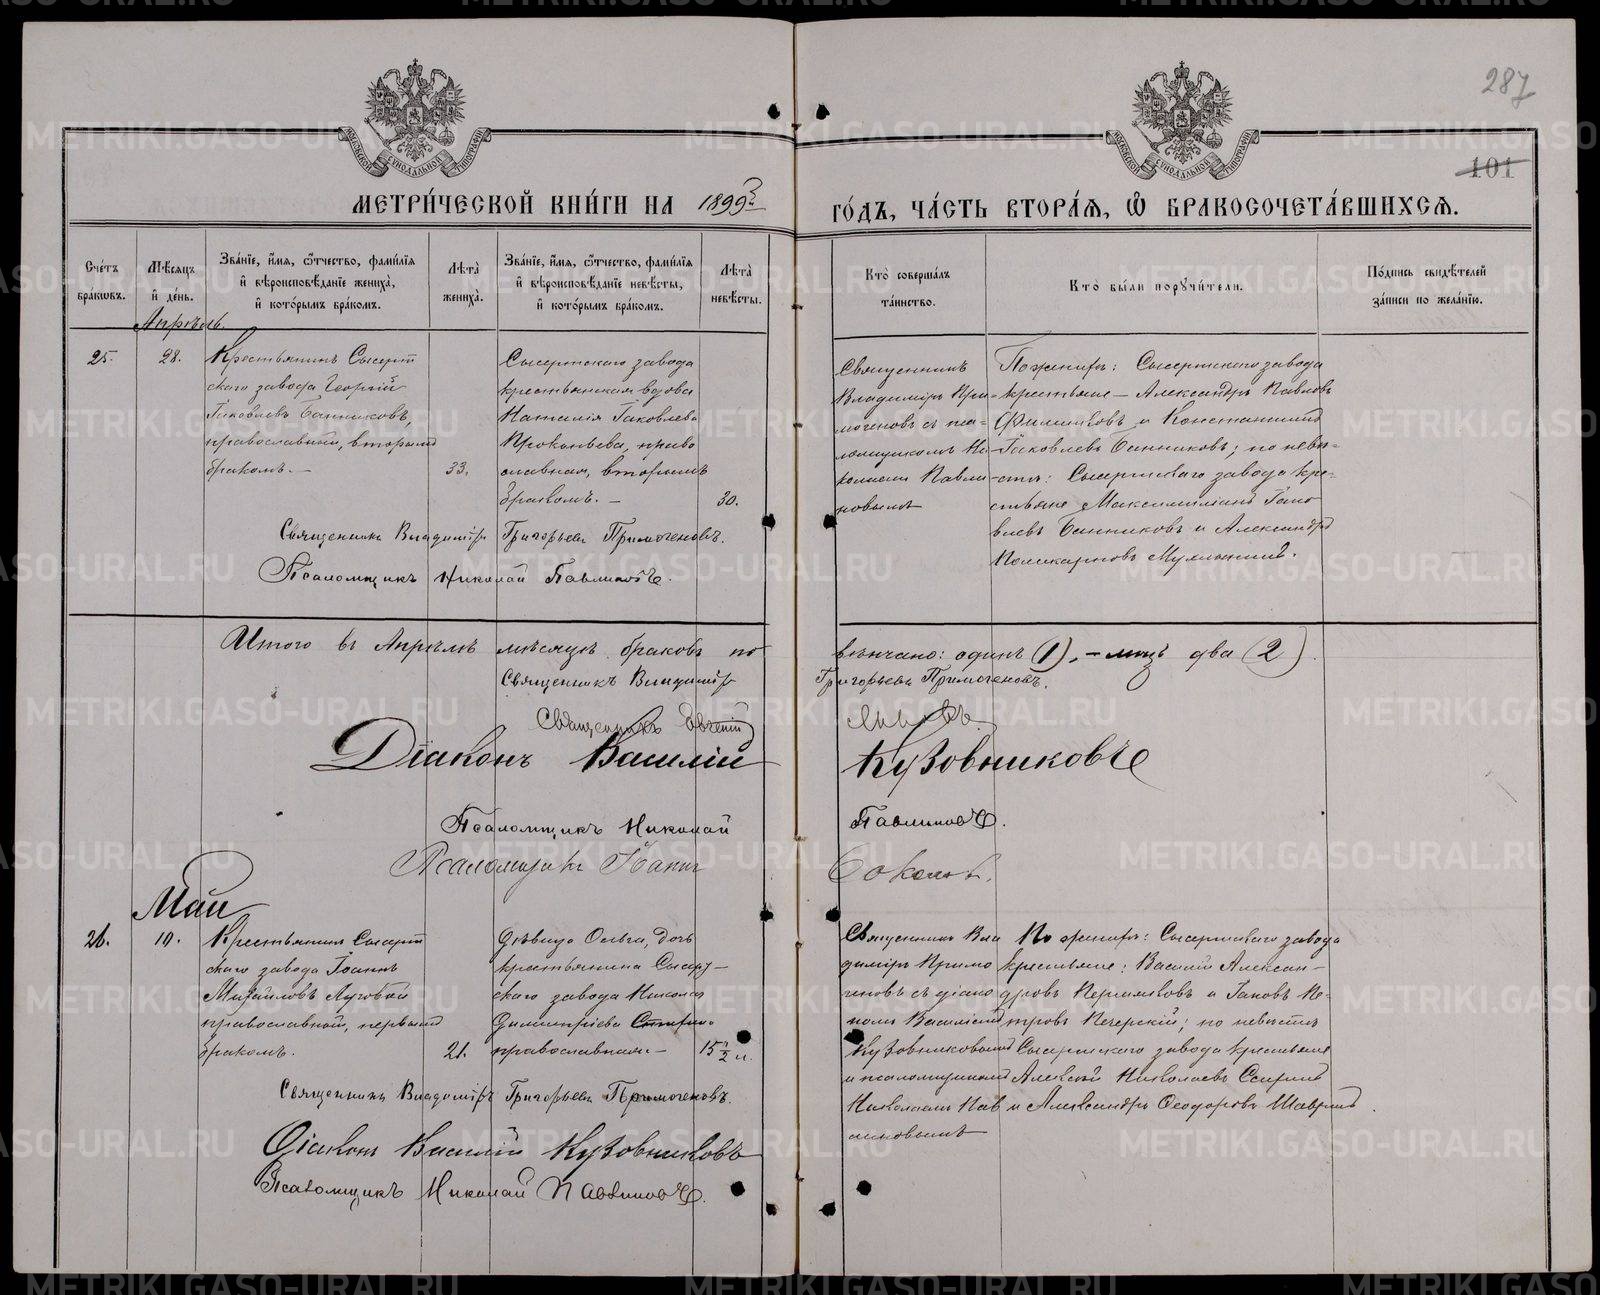 287
101
МЕТРИ́ЧЕСКОЙ КНИ́ГИ НА 1899
ГО́ДЪ, ЧА́СТЬ ВТОРА́Я, Ѿ БРАКОСОЧЕТА́ВШИХСЯ.
Сче́тъ бра́кѡвъ.
Мѣ́сяцъ и҆ де́нь.
Зва́нїе, и҆́мя, ѻ҆́тчество, фами́лїя
и҆ вѣроисповѣ́данїе жениха̀,
и҆ кото́рымъ бра́комъ.
Лѣта̀ жениха̀.
Зва́нїе, и҆́мя, ѻ҆́тчество, фами́лїя
и҆ вѣроисповѣ́данїе невѣ́сты,
и҆ кото́рымъ бра́комъ.
Лѣта̀ невѣ́сты.
Кто̀ соверша́лъ та́инство.
Кто̀ бы́ли порꙋчи́тели.
По́дпись свидѣ́телей за́писи по жела́нїю.
Апрѣль.
25.
28.
Крестьянинъ Сысерт
скаго завода Георгій
Іаковлевъ Банниковъ,
православный, вторымъ
бракомъ.—
33.
Сысертскаго завода
крестьянская вдова
Наталія Іаковлева
Прокопьева, право
славная, вторымъ
бракомъ.—
30.
Священникъ
Владиміръ При-
могеновъ съ пса-
ломщикомъ Ни-
колаемъ Павли-
новымъ
По женихѣ: Сысертскаго завода
крестьяне— Александръ Павловъ
и Константинъ
Іаковлевъ Банниковъ; по невѣ-
стѣ: Сысертскаго завода кре-
стьяне Максимиліанъ Іако
влевъ Банниковъ и Александръ
Поликарповъ
Священникъ Владиміръ Григорьевъ Примогеновъ.
Псаломщикъ Николай Павлиновъ.
Итого въ Апрѣлѣ мѣсяцѣ браковъ по
вѣнчано: одинъ (1),—лицъ два (2).
Священникъ Владиміръ
Григорьевъ Примогеновъ.
Священникъ Евгеній
Діаконъ Василій
Кузовниковъ
Псаломщикъ Николай
Павлиновъ.
Псаломщикъ Іоаннъ
Соколовъ.
Май
26.
19.
Крестьянинъ Сысерт
скаго завода Іоаннъ
Михайловъ Луговой
православный, первымъ
бракомъ.
21.
Дѣвица Ольга, дочь
крестьянина Сысерт—
скаго завода Николая
Димитріева
православная.—
15 ½ л.
Священникъ Вла
диміръ Примо
геновъ съ діако
номъ Василіемъ
Кузовниковымъ
и псаломщикомъ
Николаемъ Пав
линовымъ
По женихѣ: Сысертскаго завода
крестьяне: Василій Алексан—
дровъ Пермяковъ и Іаковъ Пе-
тровъ Печерскій; по невѣстѣ
Сысертскаго завода крестьяне
Алексѣй Николаевъ
и Александръ Ѳеодоровъ
Священникъ Владиміръ Григорьевъ Примогеновъ.
Діаконъ Василій Кузовниковъ
Псаломщикъ Николай Павлиновъ.
METRIKI.GASO-URAL.RU